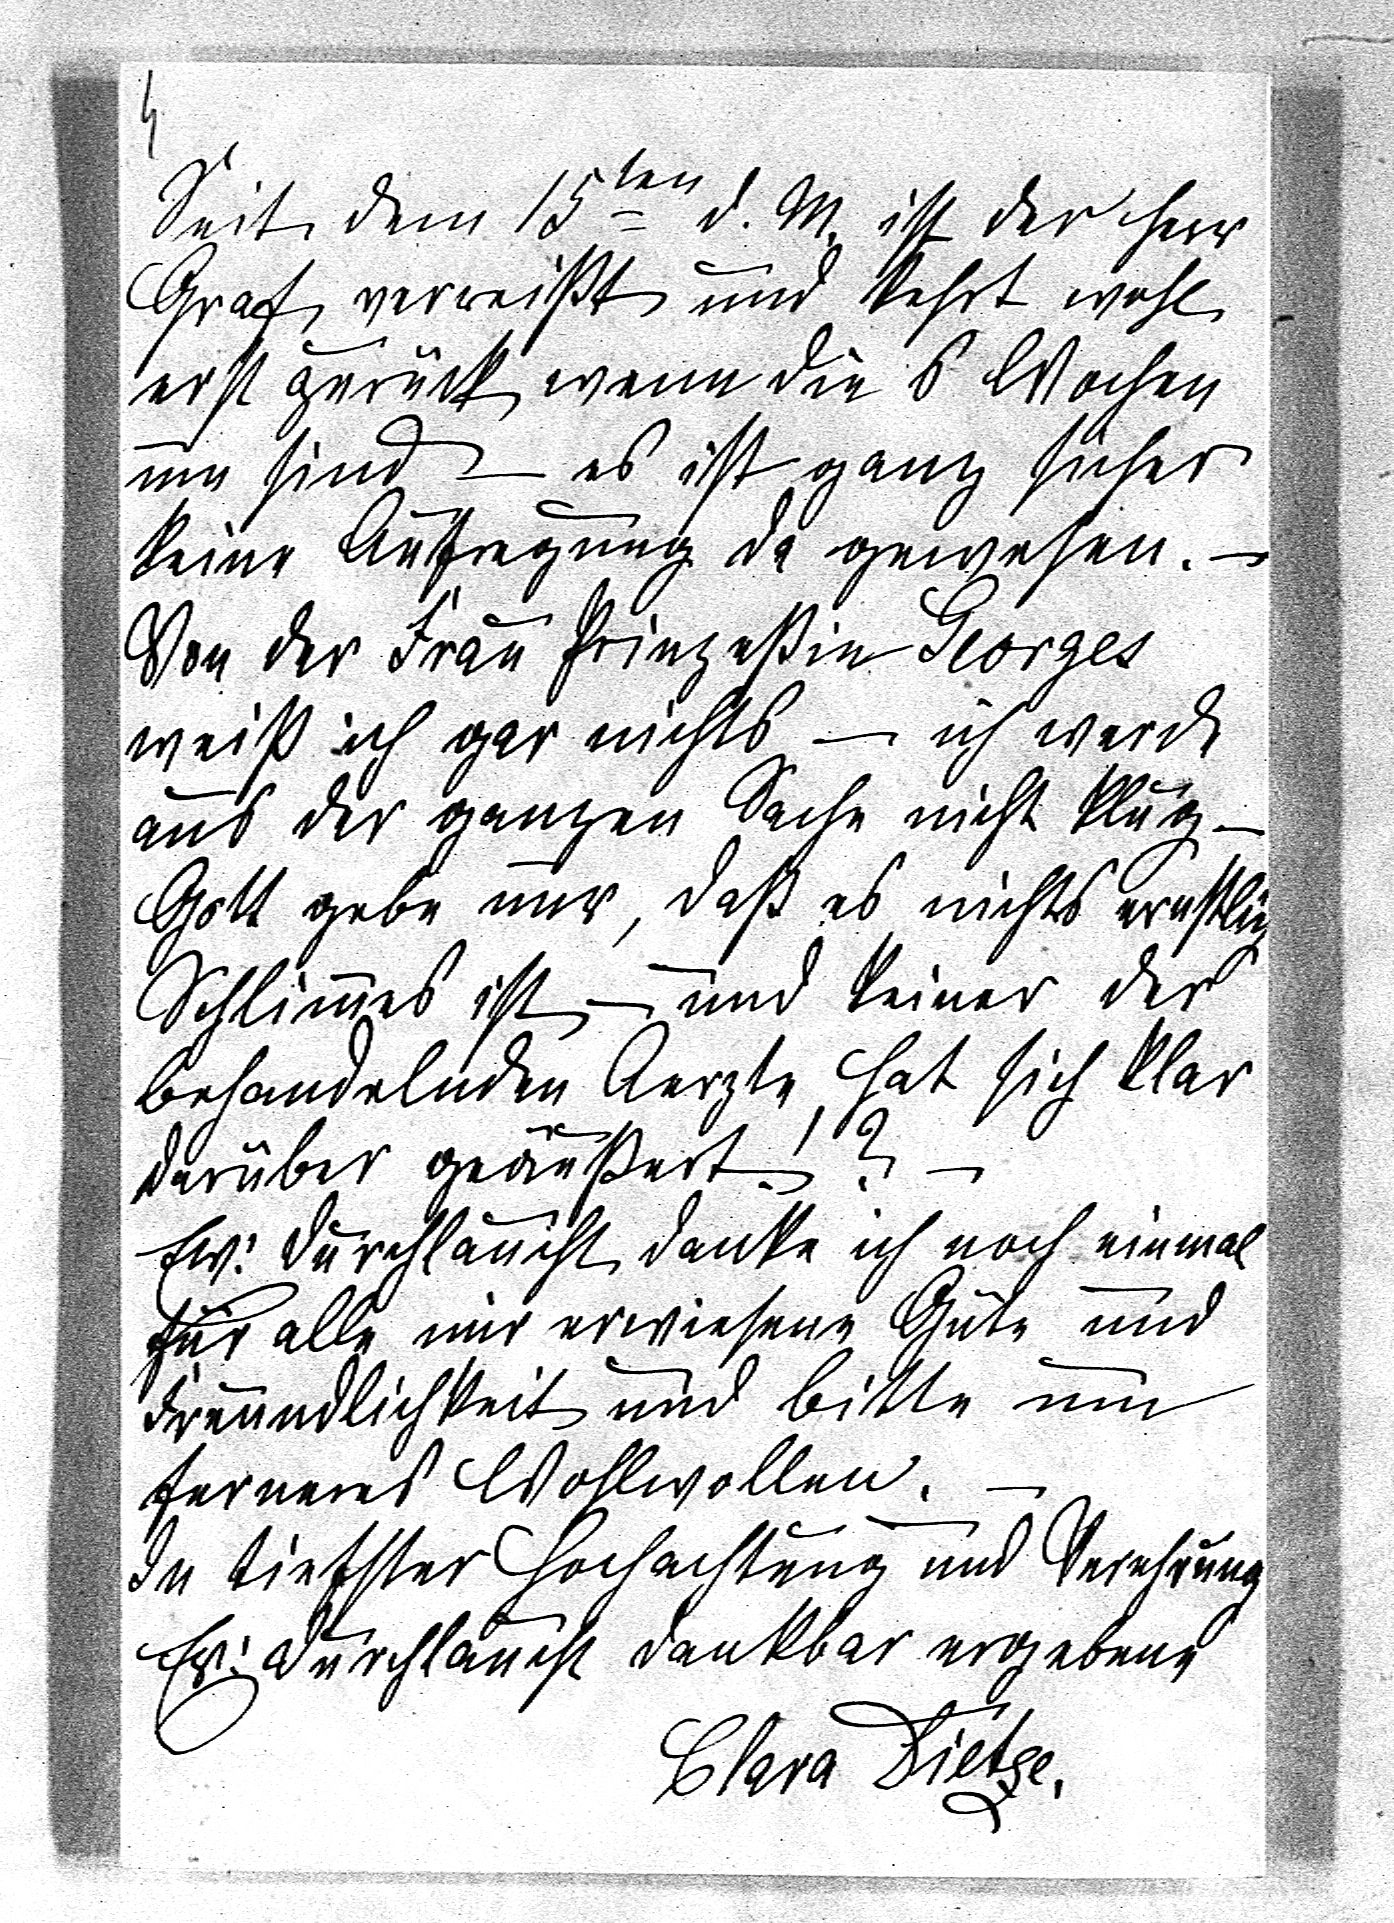 4
Seit dem 15ten d. M. ist der Herr
Graf verreißt und kehrt wohl
erst zurück wenn die 6 Wochen
um sind – es ist ganz sicher
keine Aufregung da gewesen. –
Von der Frau Prinzeßin Georges
weiß ich gar nichts – ich werde
aus der ganzen Sache nicht klug –
Gott gebe nur, daß es nichts ernstlich
Schlimes ist – und keiner der
behandelnden Aerzte, hat sich klar
darüber geäußert!? –
Ew: Durchlaucht danke ich noch einmal
für alle mir erwiesene Güte und
Freundlichkeit und bitte um
ferneres Wohlwollen. –
In tiefster Hochachtung und Verehrung
Ew: Durchlaucht dankbar ergebene
Clara Dietze.